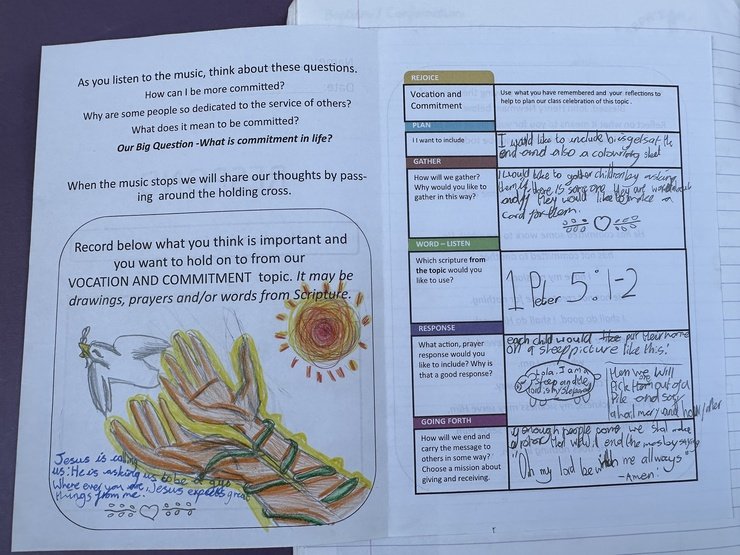 As you listen to the music, think about these questions.
How can I be more committed?
Why are some people so dedicated to the service of others?
What does it mean to be committed?
Our Big Question -What is commitment in life?
When the music stops we will share our thoughts by pass-
ing around the holding cross.
Record below what you think is important and
you want to hold on to from our
VOCATION AND COMMITMENT topic. It may be
drawings, prayers and/or words from Scripture.
Jesus is calling
us: He is asking us to be
Where ever you Jesus expects great
things from me.
REJOICE
Vocation and
Commitment
Use what you have remembered and your reflections
to help to plan our class celebration of this topic.
PLAN
I I want to include
I would like to include at the
end and also a colouring sheet
GATHER
How will we gather?
Why would you like to
gather in this way?
I would like to gather children by asking
them if there is someone they are
and if they would like to make a
card for them.
WORD – LISTEN
Which scripture from
the topic would you
like to use?
1 Peter 5:1-2
RESPONSE
What action, prayer
response would you
like to include? Why is
that a good response?
each child would put their name
on a sheep picture like this:
Lola. I am a
sheep and the
lord is my
Then we will
pick them out of a
pile and say
a hail mary and
GOING FORTH
How will we end and
carry the message to
others in some way?
Choose a mission about
giving and receiving.
people we
end the by saying
"Oh my lord be with me allways"
-Amen.